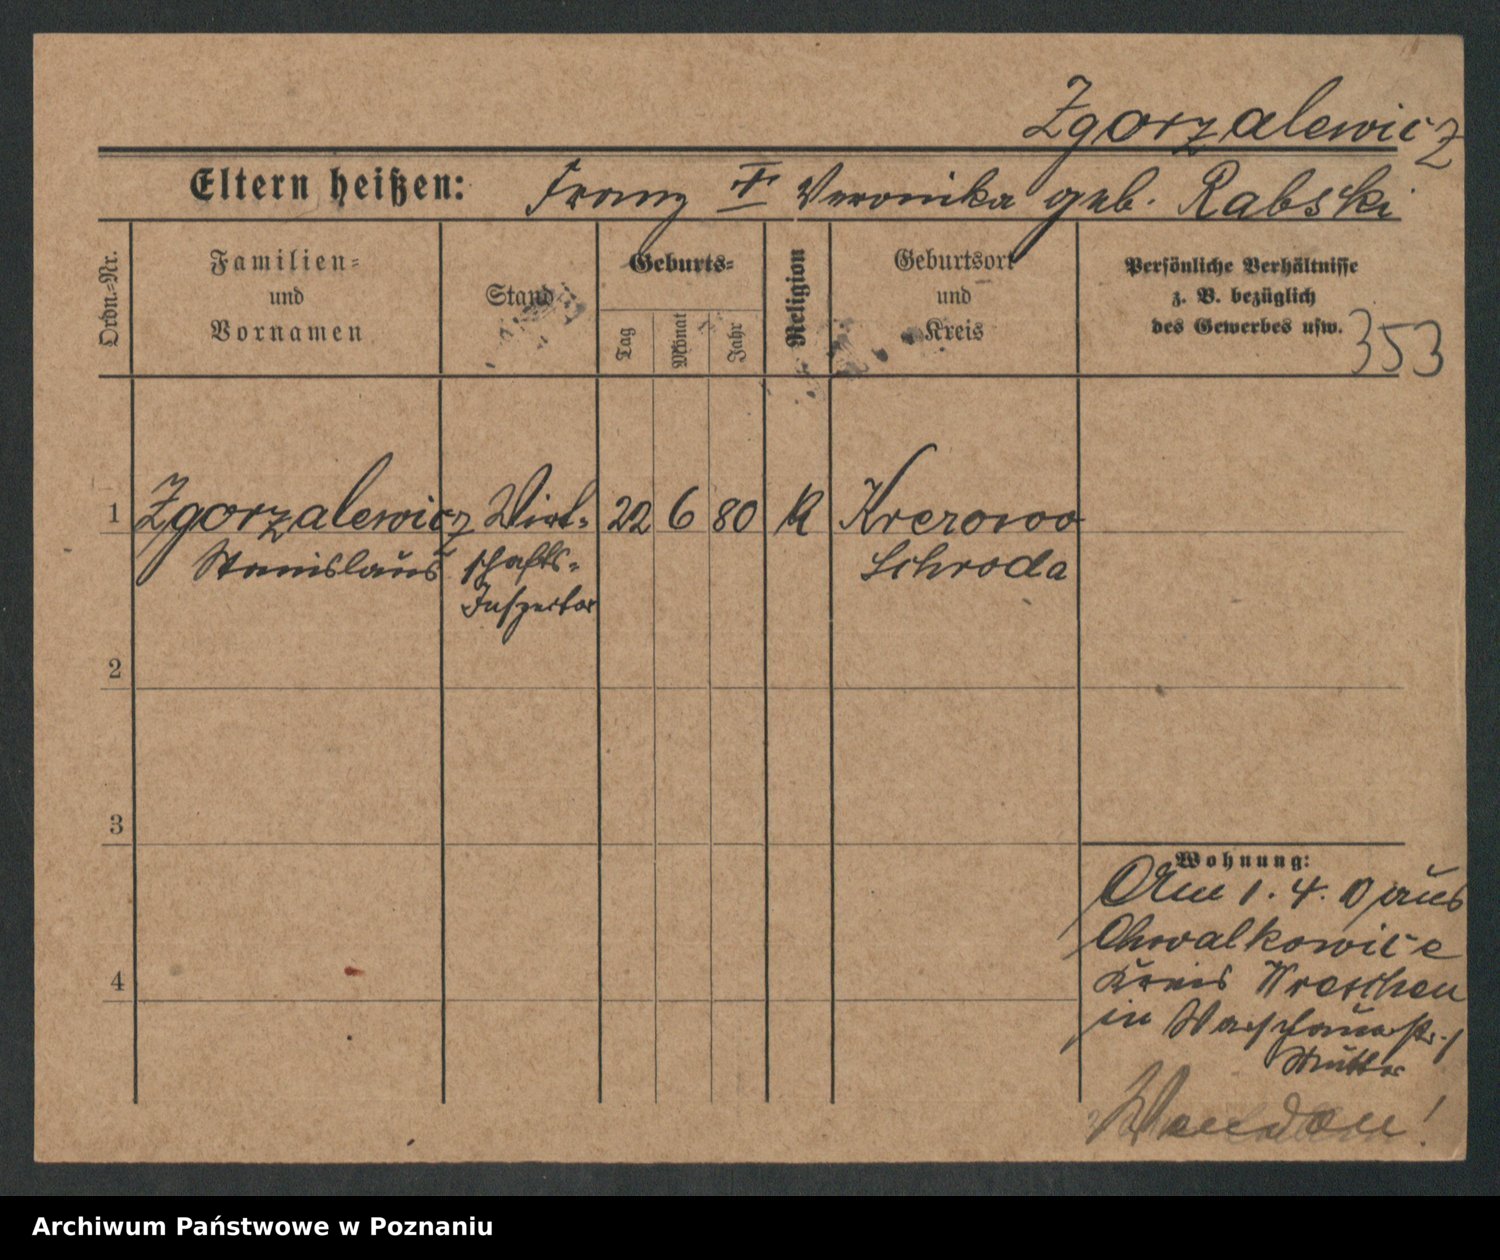 Zgorzalewicz
Eltern heißen: Franz † Veronika geb. Rabski
Ordn.-Nr.
Familien-
und
Vornamen
Stand
Geburts-
Tag
Monat
Jahr
Religion
Geburtsort
und
Kreis
Persönliche Verhältnisse
z. B. bezüglich
des Gewerbes usw.
353
1 Zgorzalewicz Wirt- 22 6 80 K Krerowo
Stanislaus schafts- Schroda
Inspector
2
3
4
Wohnung:
Am 1. 4. 0 aus
Chwalkowice
Kreis Wreschen
in Warschauerstr. 1
Mutter